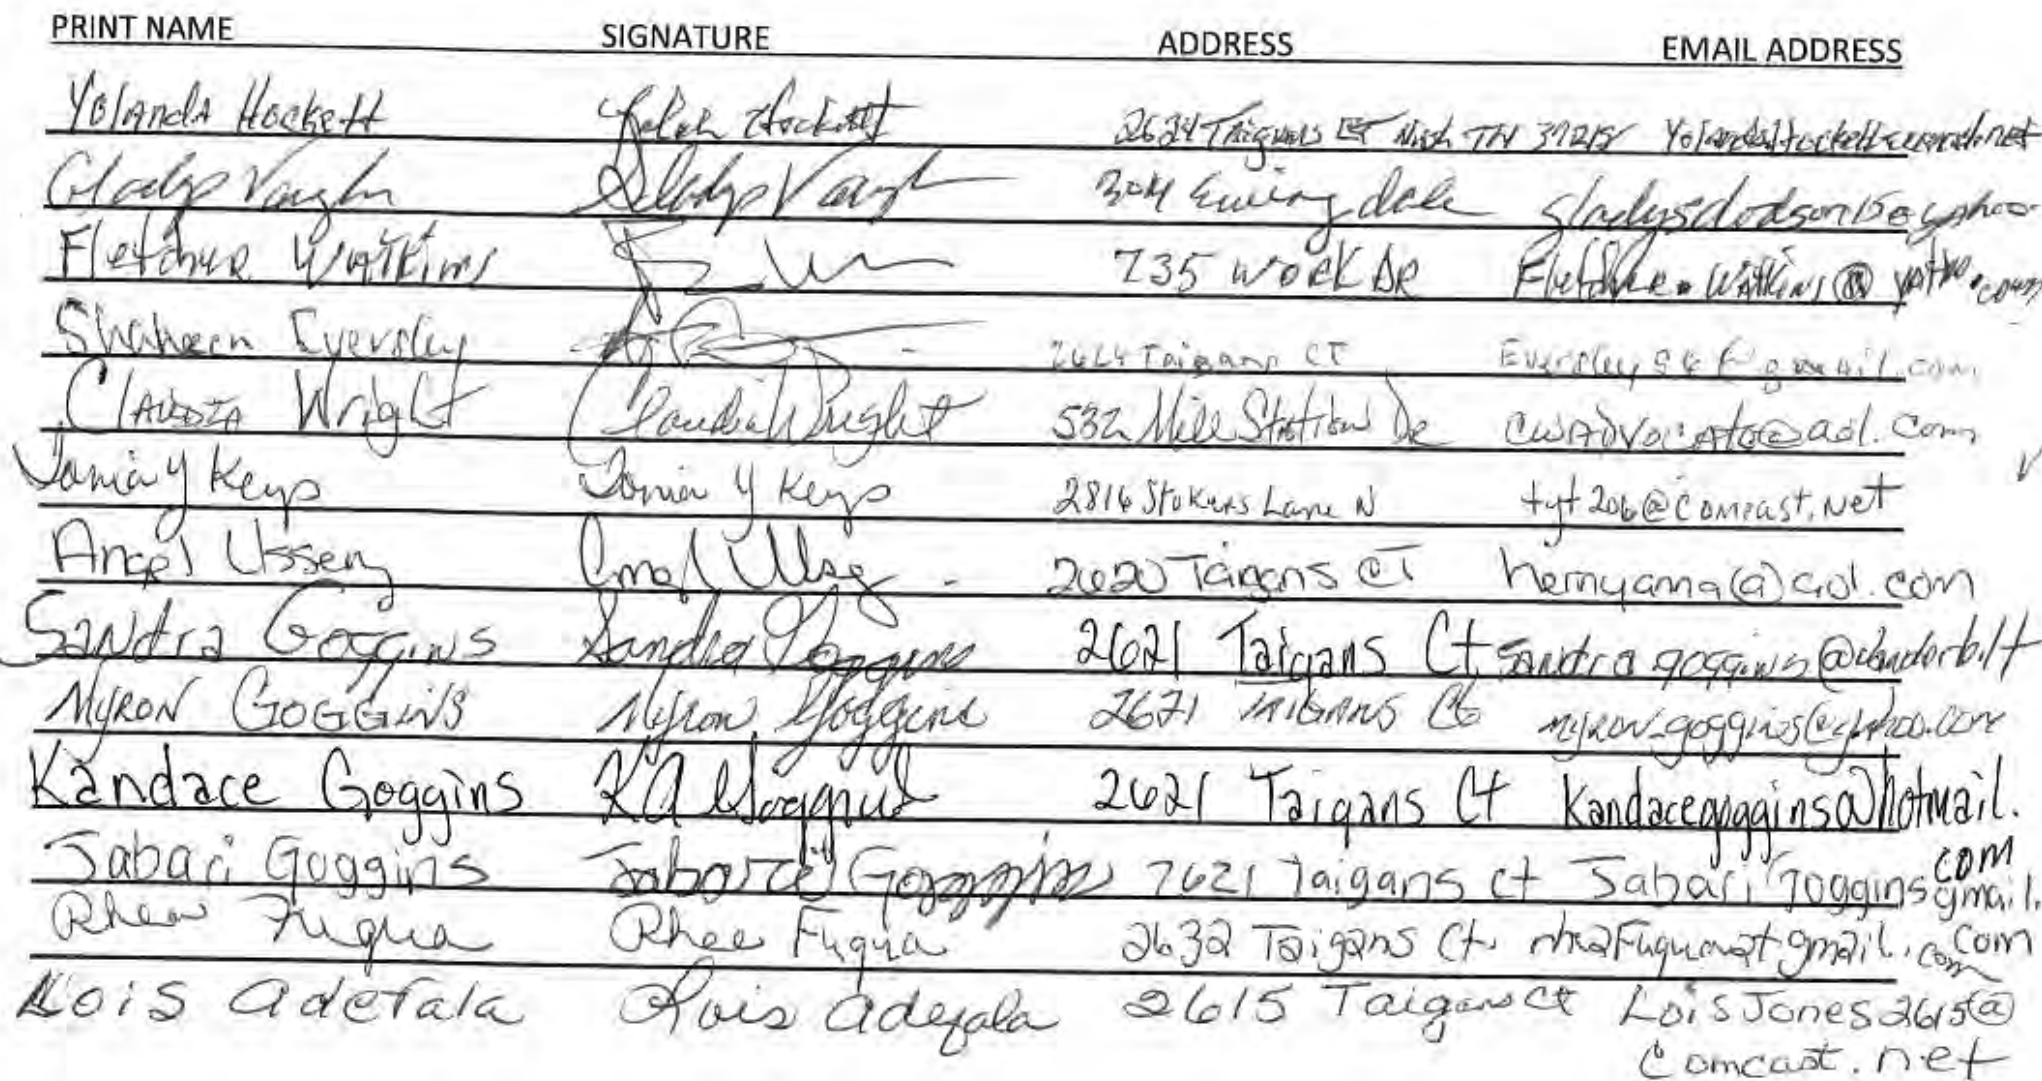 PRINT NAME SIGNATURE ADDRESS EMAIL ADDRESS
Yolanda Hockett Hockett 2624 Taigans CT Nash TN 37218
Gladys Vaughn Gladys Vaughn 304 Ewingdale gladysdodson15@yahoo
Fletcher Watkins 735 Work DR Fletcher.Watkins@yahoo.com
Shaheen Eversley 2624 Taigans CT
Claudia Wright Claudia Wright 532 Mill Station Dr cwadvocate@aol.com
Tonia Y Keys Tonia Y Keys 2816 Stokers Lane N tyt206@comcast.net
Angel Ussery 2620 Taigans CT hernyama@aol.com
Sandra Goggins Sandra Goggins 2621 Taigans Ct sandra.goggins@vanderbilt
Myron Goggins Myron Goggins 2621 Taigans Ct myron_goggins@yahoo.com
Kandace Goggins KA Goggins 2621 Taigans Ct kandacegoggins@hotmail.
com
Jabari Goggins Jabari Goggins 2621 Taigans Ct Jabari Goggins gmail.
com
Rhea Fuqua Rhea Fuqua 2632 Taigans Ct. gmail.com
Lois Adefala Lois Adefala 2615 Taigans Ct LoisJones2615@
Comcast.net